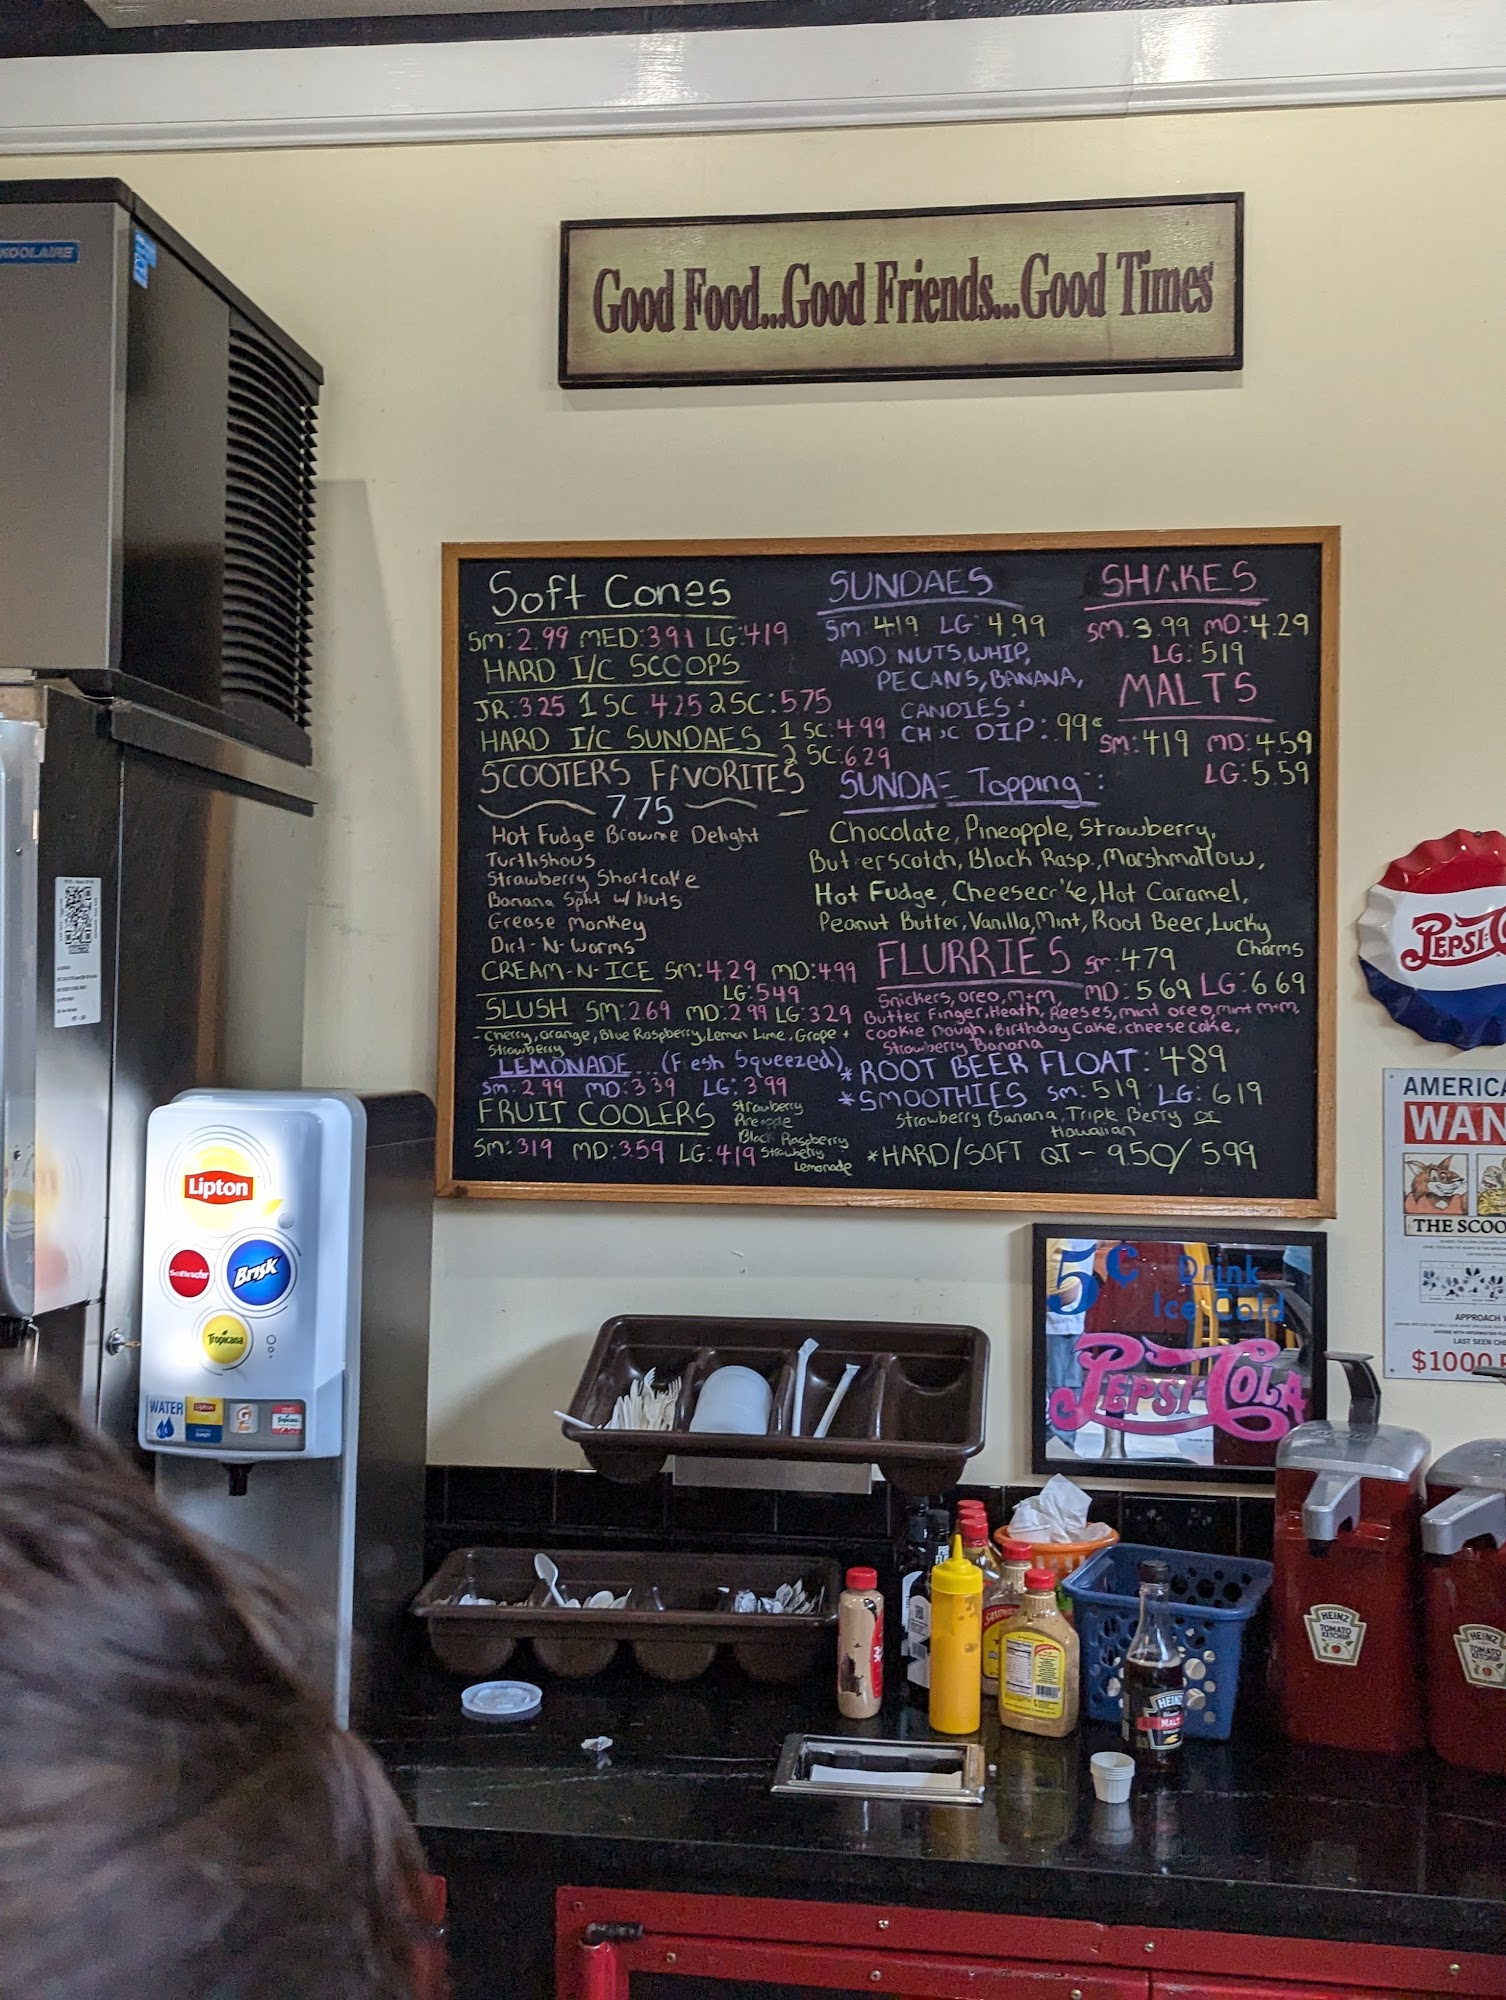 Good Food...Good Friends...Good Times
KOOLAIRE
Soft Cones
Sm: 2.99 MED: 3.91 LG: 419
HARD I/C SCOOPS
JR: 3.25 1 SC 4.25 2 SC: 5.75
HARD I/C SUNDAES 1 SC: 4.99
2 SC: 6.29
SCOOTERS FAVORITES
775
Hot Fudge Brownie Delight
Turtlishous
Strawberry Shortcake
Banana Split w/ Nuts
Grease Monkey
Dirt-N-Worms
CREAM-N-ICE Sm: 4.29 MD: 4.99
LG: 549
SLUSH Sm: 2.69 MD: 2.99 LG: 329
- Cherry, orange, Blue Raspberry, Lemon Lime, Grape +
Strawberry
LEMONADE... (F esh Squeezed)
Sm: 2.99 MD: 3.39 LG: 3.99
FRUIT COOLERS Strawberry
Black Raspberry
Strawberry
Lemonade
Sm: 319 MD: 3.59 LG: 419
SUNDAES
Sm 419 LG: 4.99
ADD NUTS, WHIP,
PECANS, BANANA,
CANDIES
CHOC DIP: .99¢
SUNDAE Topping:
Chocolate, Pineapple, Strawberry,
Butterscotch, Black Rasp., Marshmallow,
Hot Fudge, Cheesecake, Hot Caramel,
Peanut Butter, Vanilla, Mint, Root Beer, Lucky
Charms
FLURRIES Sm: 4.79
MD: 5.69 LG: 6.69
Snickers, oreo, m+m,
Butter Finger, Heath, Reeses, mint oreo, mint m+m,
Cookie Dough, Birthday Cake, cheesecake,
Strawberry Banana
*ROOT BEER FLOAT: 489
*SMOOTHIES Sm: 519 LG: 619
Strawberry Banana, Triple Berry or
Hawaiian
*HARD/SOFT QT - 9.50/ 5.99
SHAKES
Sm: 3.99 MD: 4.29
LG: 519
MALTS
Sm: 419 MD: 4.59
LG: 5.59
PEPSI-C
AMERICA
WAN
THE SCOO
APPROACH
LAST SEEN
$1000
5¢ Drink
Ice Cold
PEPSI-COLA
Lipton
SoBe
BRISK
Tropicana
WATER
Lipton
G
HEINZ
TOMATO
KETCHUP
HEINZ
TOMATO
KETCHUP
HEINZ
MALT